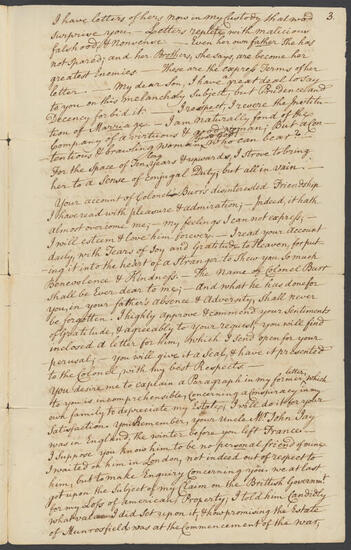 3.
I have letters of hers now in my Custody that wod
surprise you — Letters replete with malicious
falshood, & nonsense — Even her own father She has
not Spared; and her Brothers, She says, are become her
greatest Enemies — These are the express Terms of her
letter — My dear Son, I have a great deal to Say
to you on this melancholy Subject, but Prudence and
Decency forbid it — I respect, I revere the Institu-
tion of Marriage — I am naturally fond of the
Company of a virtuous & good woman; But a Con-
tentious & brawling woman, Who can bear it.
For the Space of Ten years & upwards, I strove to bring
her to a Sense of Conjugal Duty; but all in vain.
Your account of Colonel Burr's disinterested Friendship
I have read with pleasure & admiration; Indeed, it hath
almost overcome me; — my feelings I can not express; —
I will esteem & love him forever. — I read your Account
daily, with Tears of Joy and Gratitude to Heaven, for put-
ing it into the heart of a Stranger to Shew you So much
Benevolence & Kindness. — The Name of Colonel Burr
Shall be Ever dear to me; — And what he has done for
you, in your father's Absence & Adversity, Shall never
be forgotten! I highly approve & commend your Sentiments
of Gratitude, & agreeably to your request you will find
inclosed a letter for him, Which I Send open for your
perusal; — You will give it a Seal, & have it presented
to the Colonel with my best Respects —
You desire me to explain a Paragraph in my former letter, which
to you is incomprehensible, Concerning a Conspiracy in my
own family to depreciate my Estate; I will do it for your
Satisfaction. You Remember, your Uncle Mr John Jay
was in England, the winter before you left France. —
I suppose you know him to be no personal friend of mine
I waited on him in London, not indeed out of respect to
him, but to make Enquiry concerning you. we at last
got upon the Subject of my Claim on the British Governmt
for my Loss of American Property; I told him Candidly
what value I did Set upon it, & how promising the Estate
of Munrosfield was at the Commencement of the war,